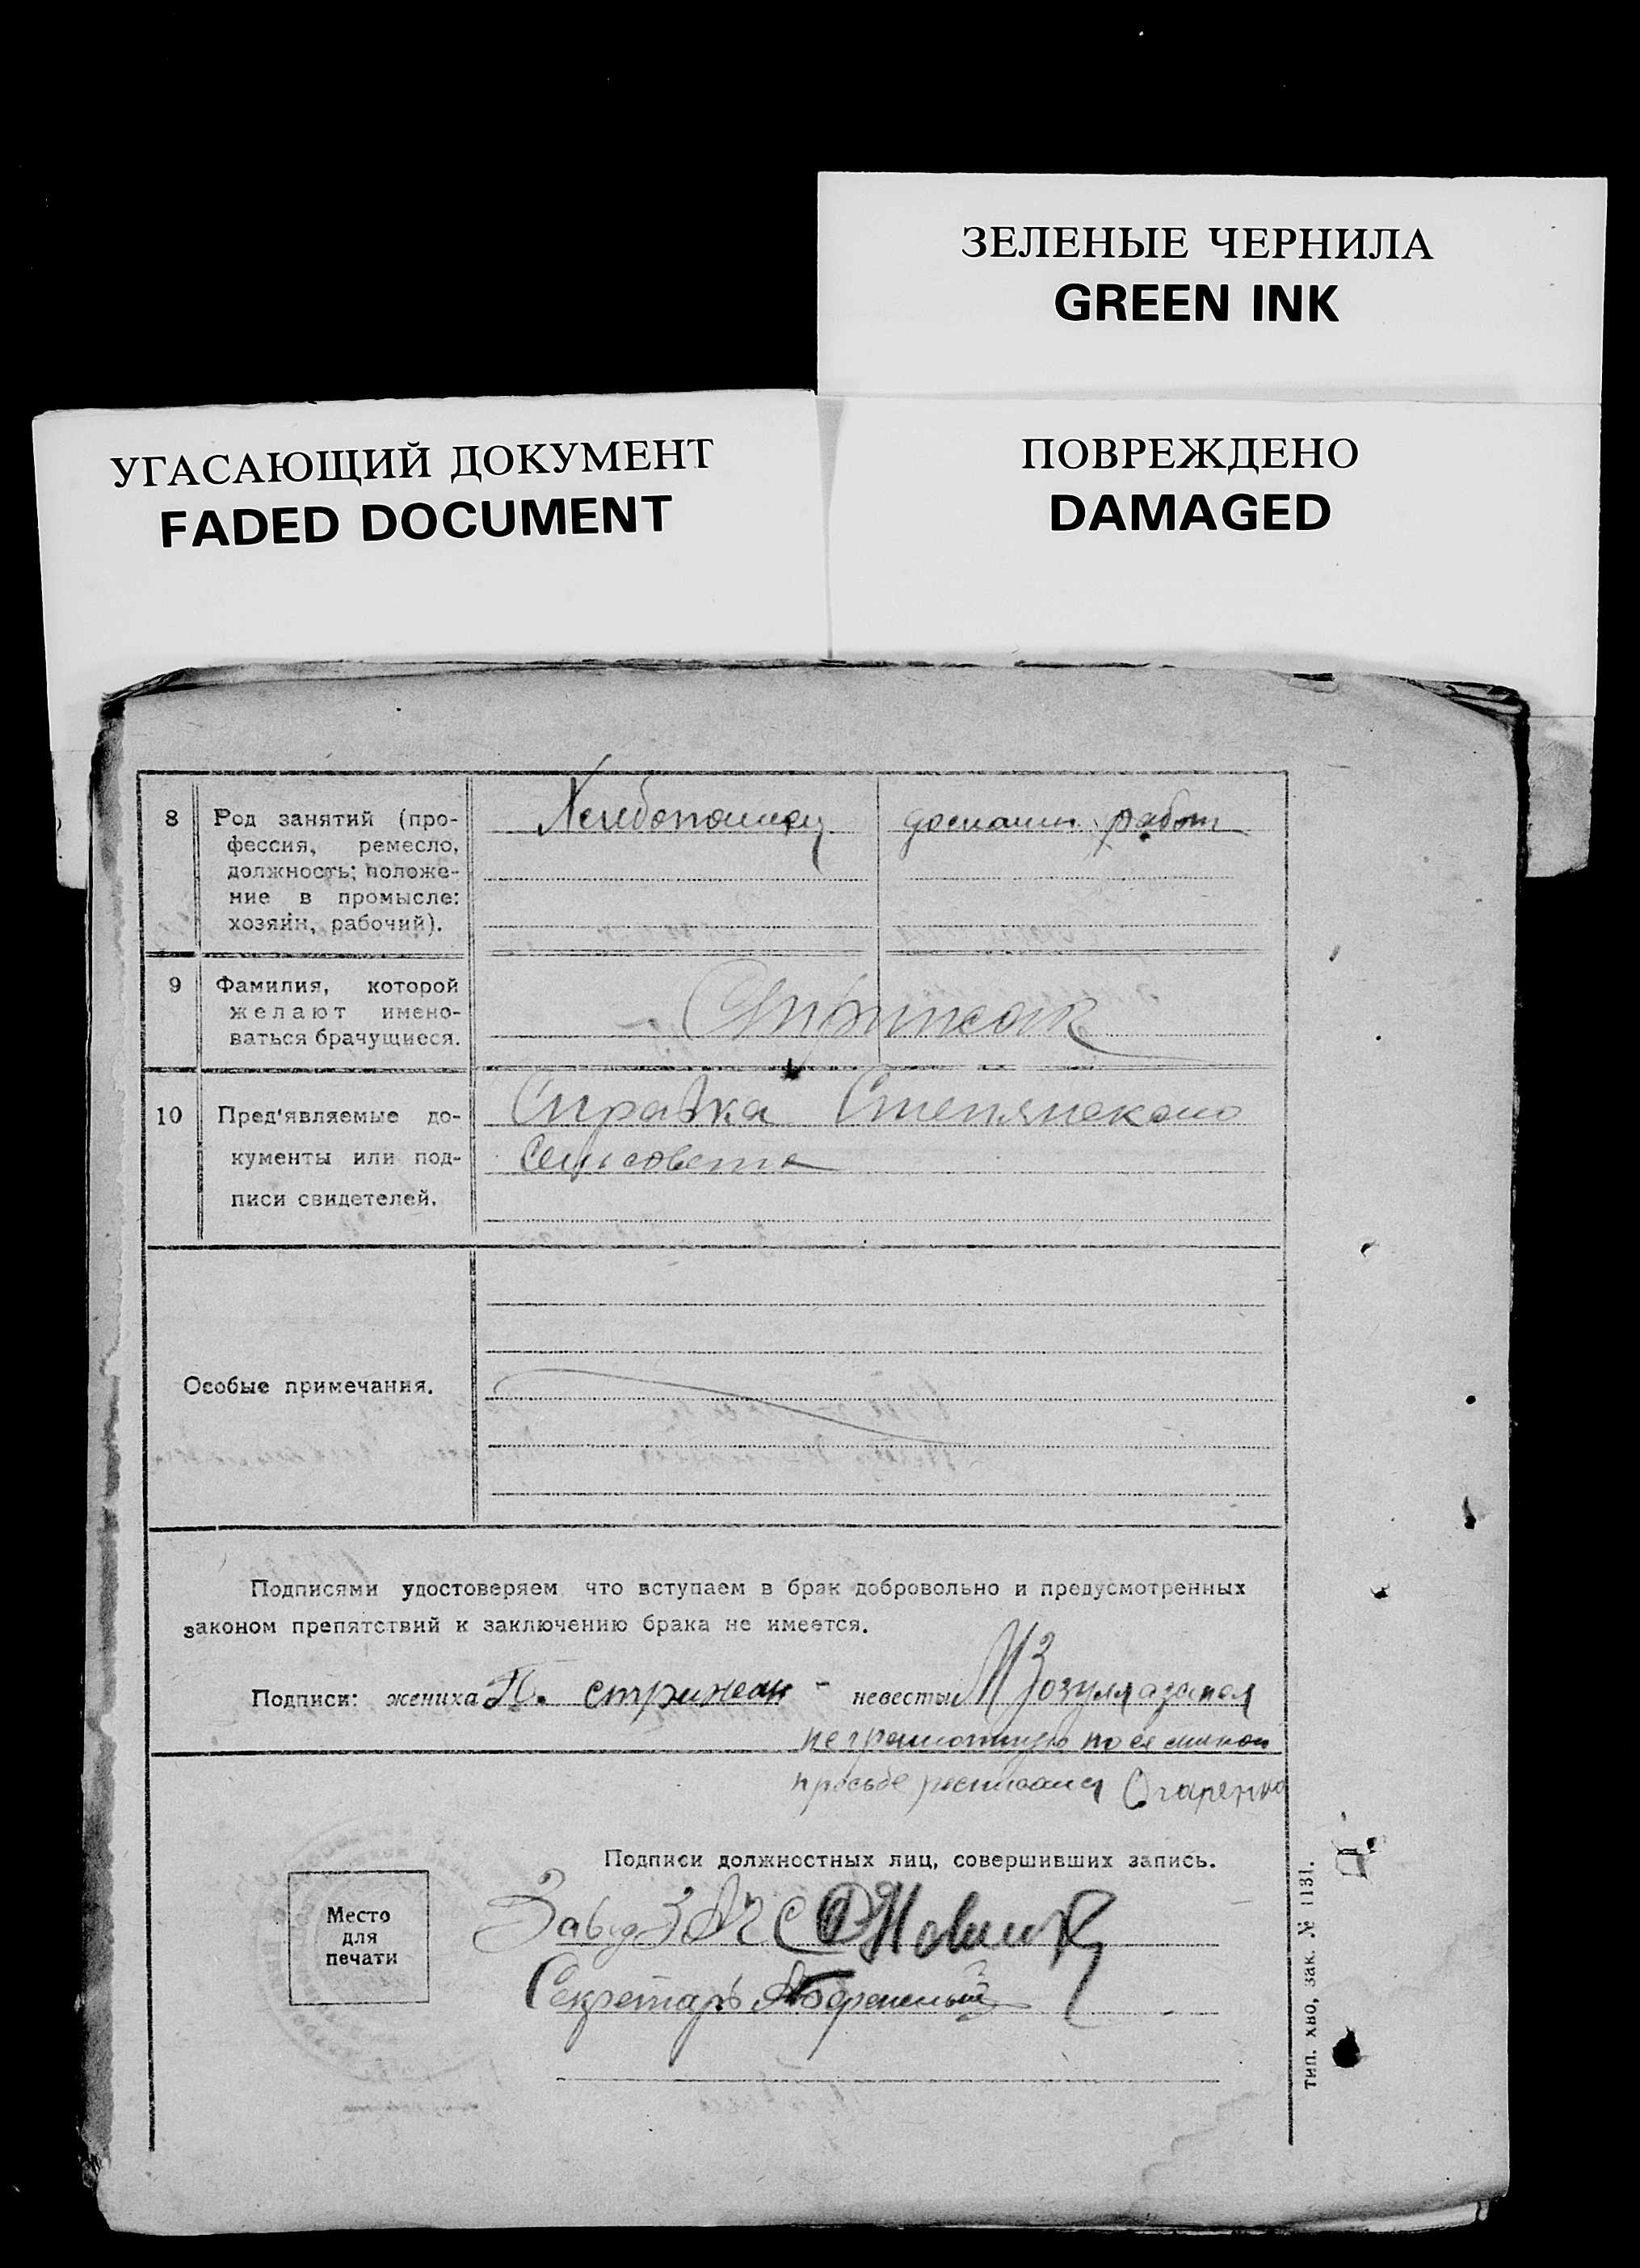 ЗЕЛЕНЫЕ ЧЕРНИЛА
GREEN INK
УГАСАЮЩИЙ ДОКУМЕНТ
FADED DOCUMENT
ПОВРЕЖДЕНО
DAMAGED
8 Род занятий (про-
фессия, ремесло,
должность; положе-
ние в промысле:
хозяин, рабочий).
Хлебопашец
работ
9 Фамилия, которой
желают имено-
ваться брачущиеся.
Стрижак
10 Пред'являемые до-
кументы или под-
писи свидетелей.
Справка
сельсовета
Особые примечания.
Подписями удостоверяем что вступаем в брак добровольно и предусмотренных
законом препятствий к заключению брака не имеется.
Подписи: жениха П. стрижак - невесты Зозуля
неграмотную по ея
просьбе росписался Огаренко
Подписи должностных лиц, совершивших запись.
Место
для
печати
Завед ЗАГС
Секретарь
тип. хво, зак. № 1131.